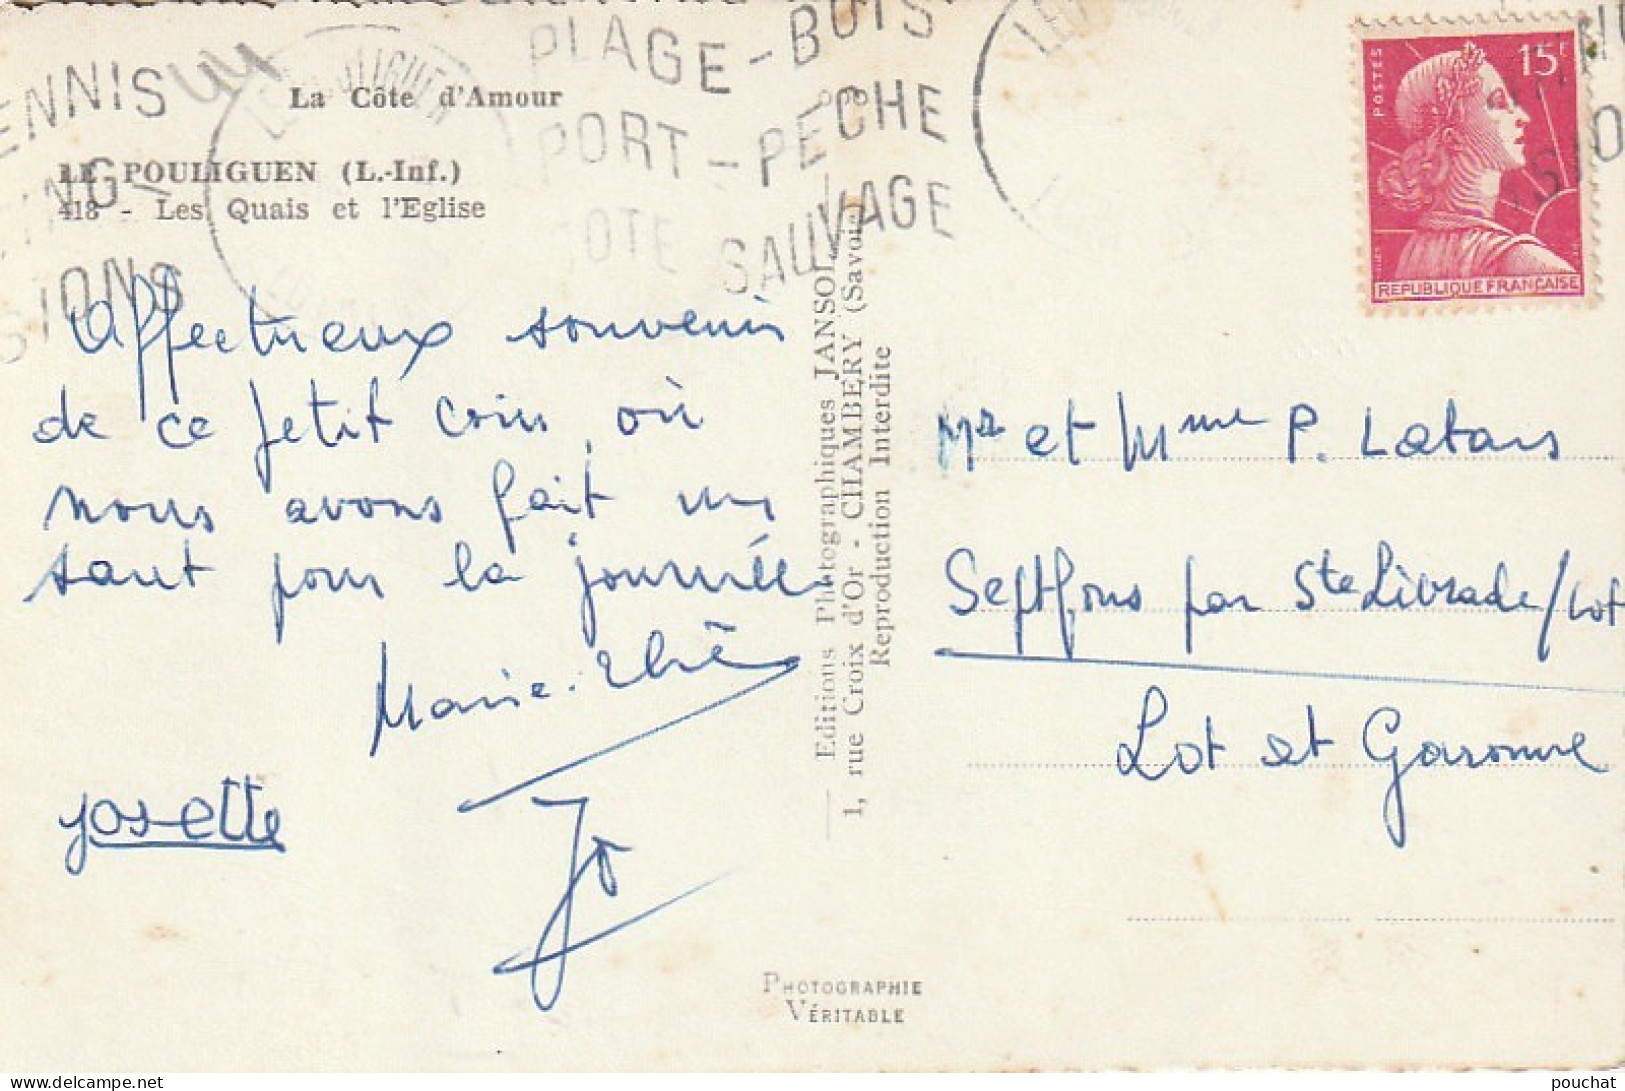 La Côte d'Amour
LE POULIGUEN (L.-Inf.)
418 - Les Quais et l'Eglise
ENNIS
ING-
SIONS
LE POULIGUEN
PLAGE-BOIS
PORT-PECHE
COTE SAUVAGE
POSTES
15F
REPUBLIQUE FRANÇAISE
Affectueux souvenir
de ce petit coin, où
nous avons fait un
saut pour la journée
Marie-
Josette
Jo
Editions Photographiques JANSOL
1, rue Croix d'Or - CHAMBERY (Savoie)
Reproduction Interdite
Mr et Mme P. Latans
Septfons par Ste Livrade/Lot
Lot et Garonne
PHOTOGRAPHIE
VÉRITABLE
pouchat